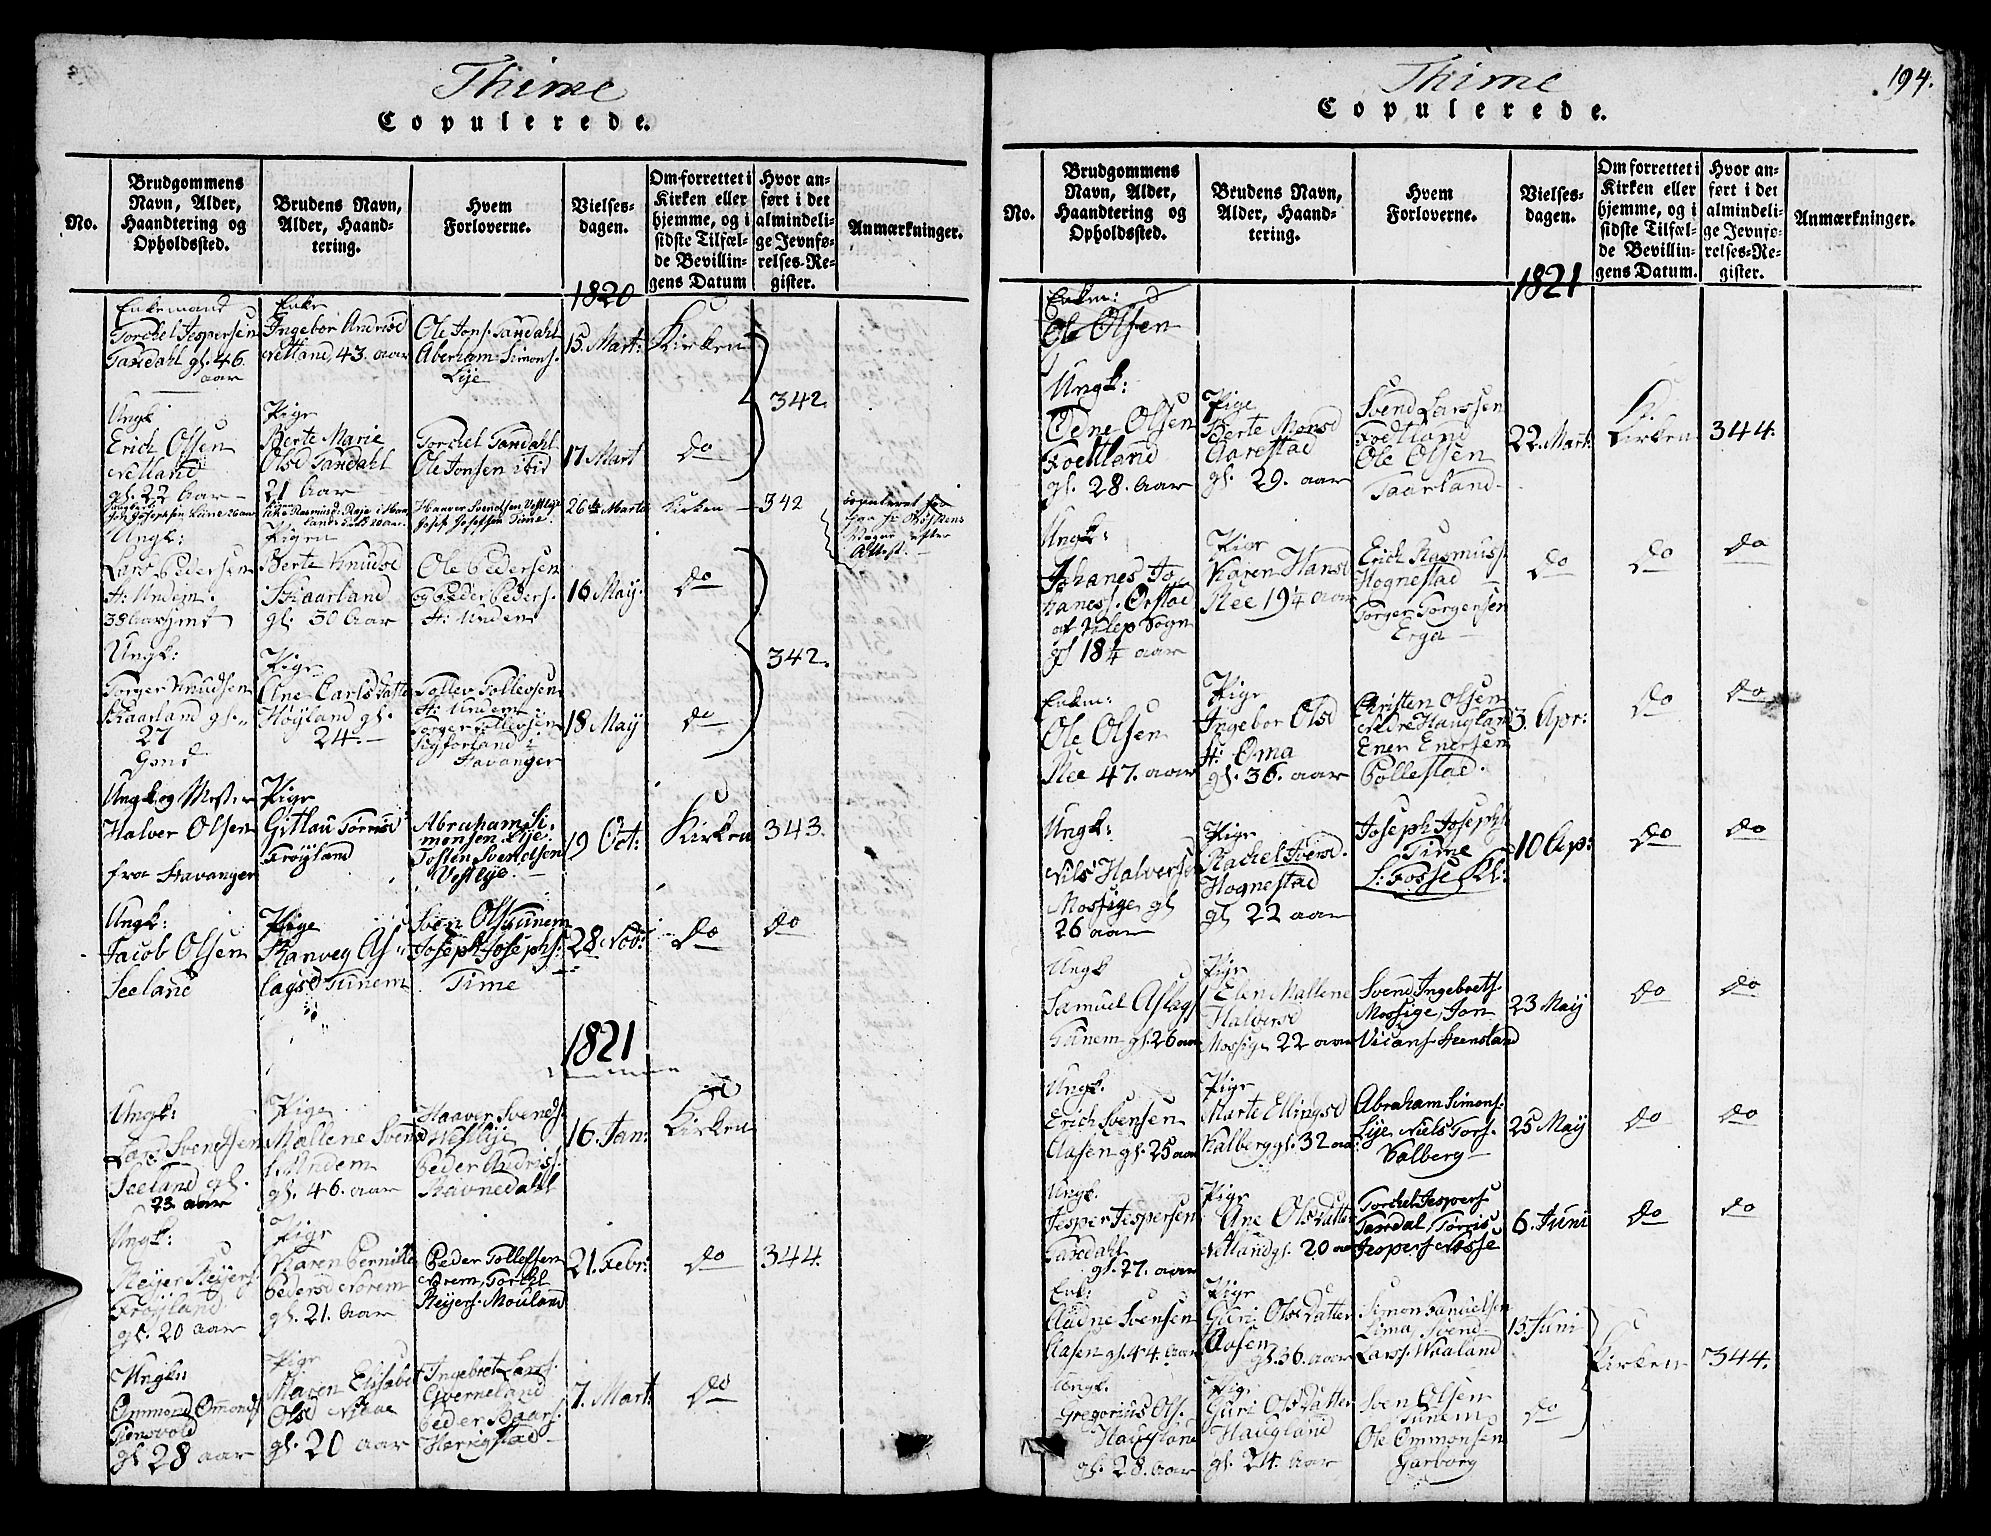 Thime
Copulerede.
No.
Brudgommens Navn, Alder, Haandtering og Opholdssted.
Brudens Navn, Alder, Haandtering.
Hvem Forloverne.
Vielses-dagen.
Om forrettet i Kirken eller hjemme, og i sidste Tilfælde Bevillingens Datum
Hvor anført i det almindelige Jevnførelses-Register.
Anmærkninger.
1820
Enkemand
Torchel Jespersen
Taxdahl gl. 46.
aar
Enke
Ingebor Andrisd
Netland, 43. aar
Ole Jons. Taxdahl
Aberham Simons.
Lye
15. Mart:
Kirken
342.
Ungk
Erich Olsen
Netland
gl. 22 Aar
Pige
Berte Marie
Olsd Taxdahl
21 Aar
Torchel Taxdahl
Ole Jonsen ibid
17 Mart
do
26de Marts
Kirken
342
Josef Josefsen Time
Attest.
Ungk:
Lars Pedersen
H: Undem
Pigen
Berte Knudsd
Skaarland
gl. 30 Aar
Ole Pedersen
og Peder Peders.
H: Undem
16 May.
do
342.
Ungk:
Torger Knudsen
Skaarland gl.
27
Pige
Ane Carlsdatter
Høyland gl.
24.
Tollev Tollevsen
H: Undem
Torger Tollevsen
Stavanger
18 May
do
Ungk og Mester
Halver Olsen
fra Stavanger
Pige
Gitlau Torrisd
Frøyland
Abraham Si-
monsen Lye
Tosten Svendsen
Vestlye.
19 Oct:
Kirken
343.
Ungk:
Jacob Olsen
Seeland
Pige
Ranveg As-
lagsd Tunem
Sven Ols. Tunem
Joseph Josephs.
Time
28 Nov:
do
do
1821
Ungk:
Lars Svendsen
Seeland gl.
23 aar
Pige
Mallene Svensd
Undem
gl. 46. aar
Haaver Svends.
Vestlye
Peder Andriss.
Ravnedahl
16. Jan:
Kirken
Ungk:
Reyer Reyers.
Frøyland
gl. 20 aar
Pige
Karen Pernille
Pedersd Norem
gl. 21. Aar
Peder Tollefsen
Norem, Torchl
Reyers. Mouland
21. Febr:
do
344.
Ungk
Ommond Omonds.
Tiensvold
gl. 28 aar
Pige
Maren Elisabet
Olsd Njaae
gl. 20 aar
Ingebret Lars.
Qverneland
Peder Baars.
Herrigstad
7. Mart.
do
Thime
194.
Copulerede.
No.
Brudgommens Navn, Alder, Haandtering og Opholdssted.
Brudens Navn, Alder, Haandtering.
Hvem Forloverne.
Vielses-dagen.
Om forrettet i Kirken eller hjemme, og i sidste Tilfælde Bevillingens Datum.
Hvor anført i det almindelige Jevnførelses-Register.
Anmærkninger.
1821
Enkem:
Ole Olsen
Ungk:
Odne Olsen
Foettland
gl. 28. Aar
Pige
Berte Monsd
Aarestad
gl. 29. aar
Svend Larssen
Foetland
Ole Olsen
Taarland
22. Mart:
Kirken
344.
Ungk:
Johanes Jo-
haness. Orstad
af Klep Sogn
gl 18¼ aar
Pige
Karen Hansd
Nee 19¼ aar
Erich Rasmuss.
Hognestad
Torger Torgersen
Erga
do
do
do
Enkem:
Ole Olsen
Nee 47. aar
Pige
Ingebor Olsd
H: Oma
gl. 36. aar
Christen Olsen
Nedre Haugland
Ener Enersen
Pollestad.
3. Apr:
do
do
Ungk:
Nils Halvorsen
Mossige gl
26 aar
Pige
Rachel Svensd.
Hognestad
gl 22 aar
Joseph Josephs.
Time
S: Fosse Kl:
10 Ap:
do
do
Ungk
Samuel Aslags
Tunem gl. 26 aar
Pige
Elen Mallene
Halversd
Mossige 22 aar
Svend Ingebrets.
Mossige, Jon
23 May
do
do
Ungk.
Erich Svensen
Aasen gl. 25 aar
Pige
Marte Ellingsd
Kalberg gl. 32 aar
Abraham Simons.
Lye Niels Tors.
Kalberg
25 May
do
do
Ungk.
Jesper Jespersen
Taxdahl
gl. 27. aar
Pige
Ane Olsdatter
Netland gl. 20 aar
Torchel Jespers
Taxdal, Torris
Jespers Nesse
6. Juni
do
do
Enk:
Audne Svensen
Aasen gl. 44. Aar
Pige
Guri Olsdatter
Aasen
gl. 36. aar
Simon Samuelsen
Lima, Svend
Larss. Waaland
13. Juni
Kirken
344.
Ungk.
Gregorius Ols.
Haugland
gl. 28. Aar
Pige
Guri Olsdatter
Haugland
gl. 24. Aar
Sven Olsen
Tunem
Ole Ommonsen
Garborg
do